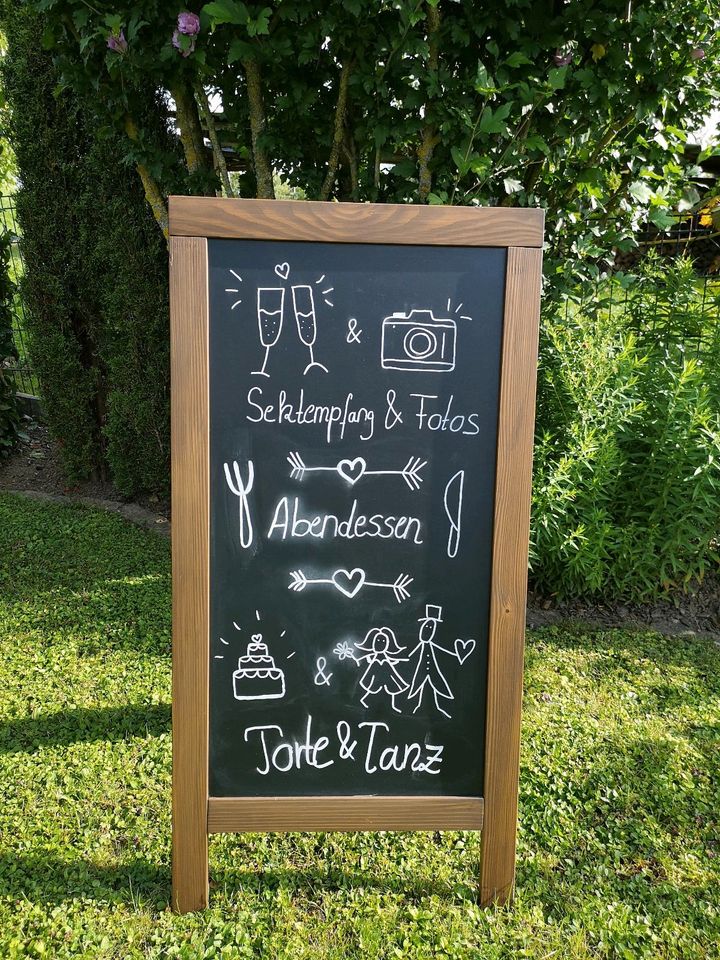 &
Sektempfang & Fotos
Abendessen
&
Torte & Tanz